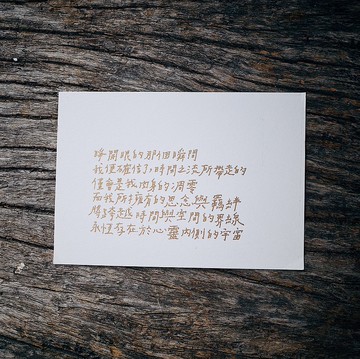 睜開眼的那個瞬間
我便確信了,時間土淡所帶走的
僅會是我肉身的凋零
而我所擁有的思念與羈絆
將跨越時間與空間的界線
永恆存在於心靈內側的宇宙